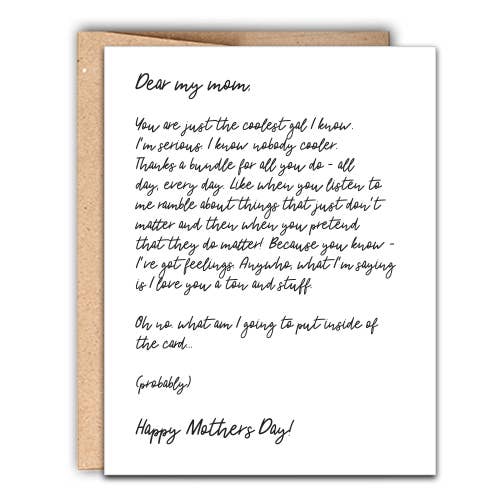 Dear my mom,
You are just the coolest gal I know.
I'm serious. I know nobody cooler.
Thanks a bundle for all you do - all
day, every day. Like when you listen to
me ramble about things that just don't
matter and then when you pretend
that they do matter! Because you know -
I've got feelings. Anywho, what I'm saying
is I love you a ton and stuff.
Oh no. what am I going to put inside of
the card...
(probably)
Happy Mothers Day!